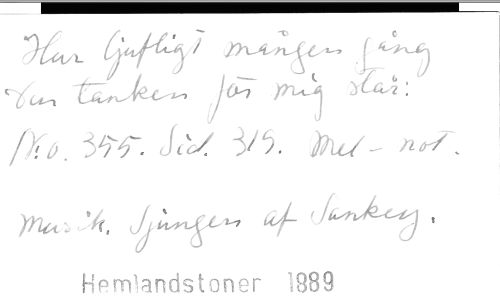 Hur ljufligt mången gång
den tanken för mig står:
No. 355. Sid. 319. Mel-not.
Musik. Sjungen af Sankey.
Hemlandstoner 1889